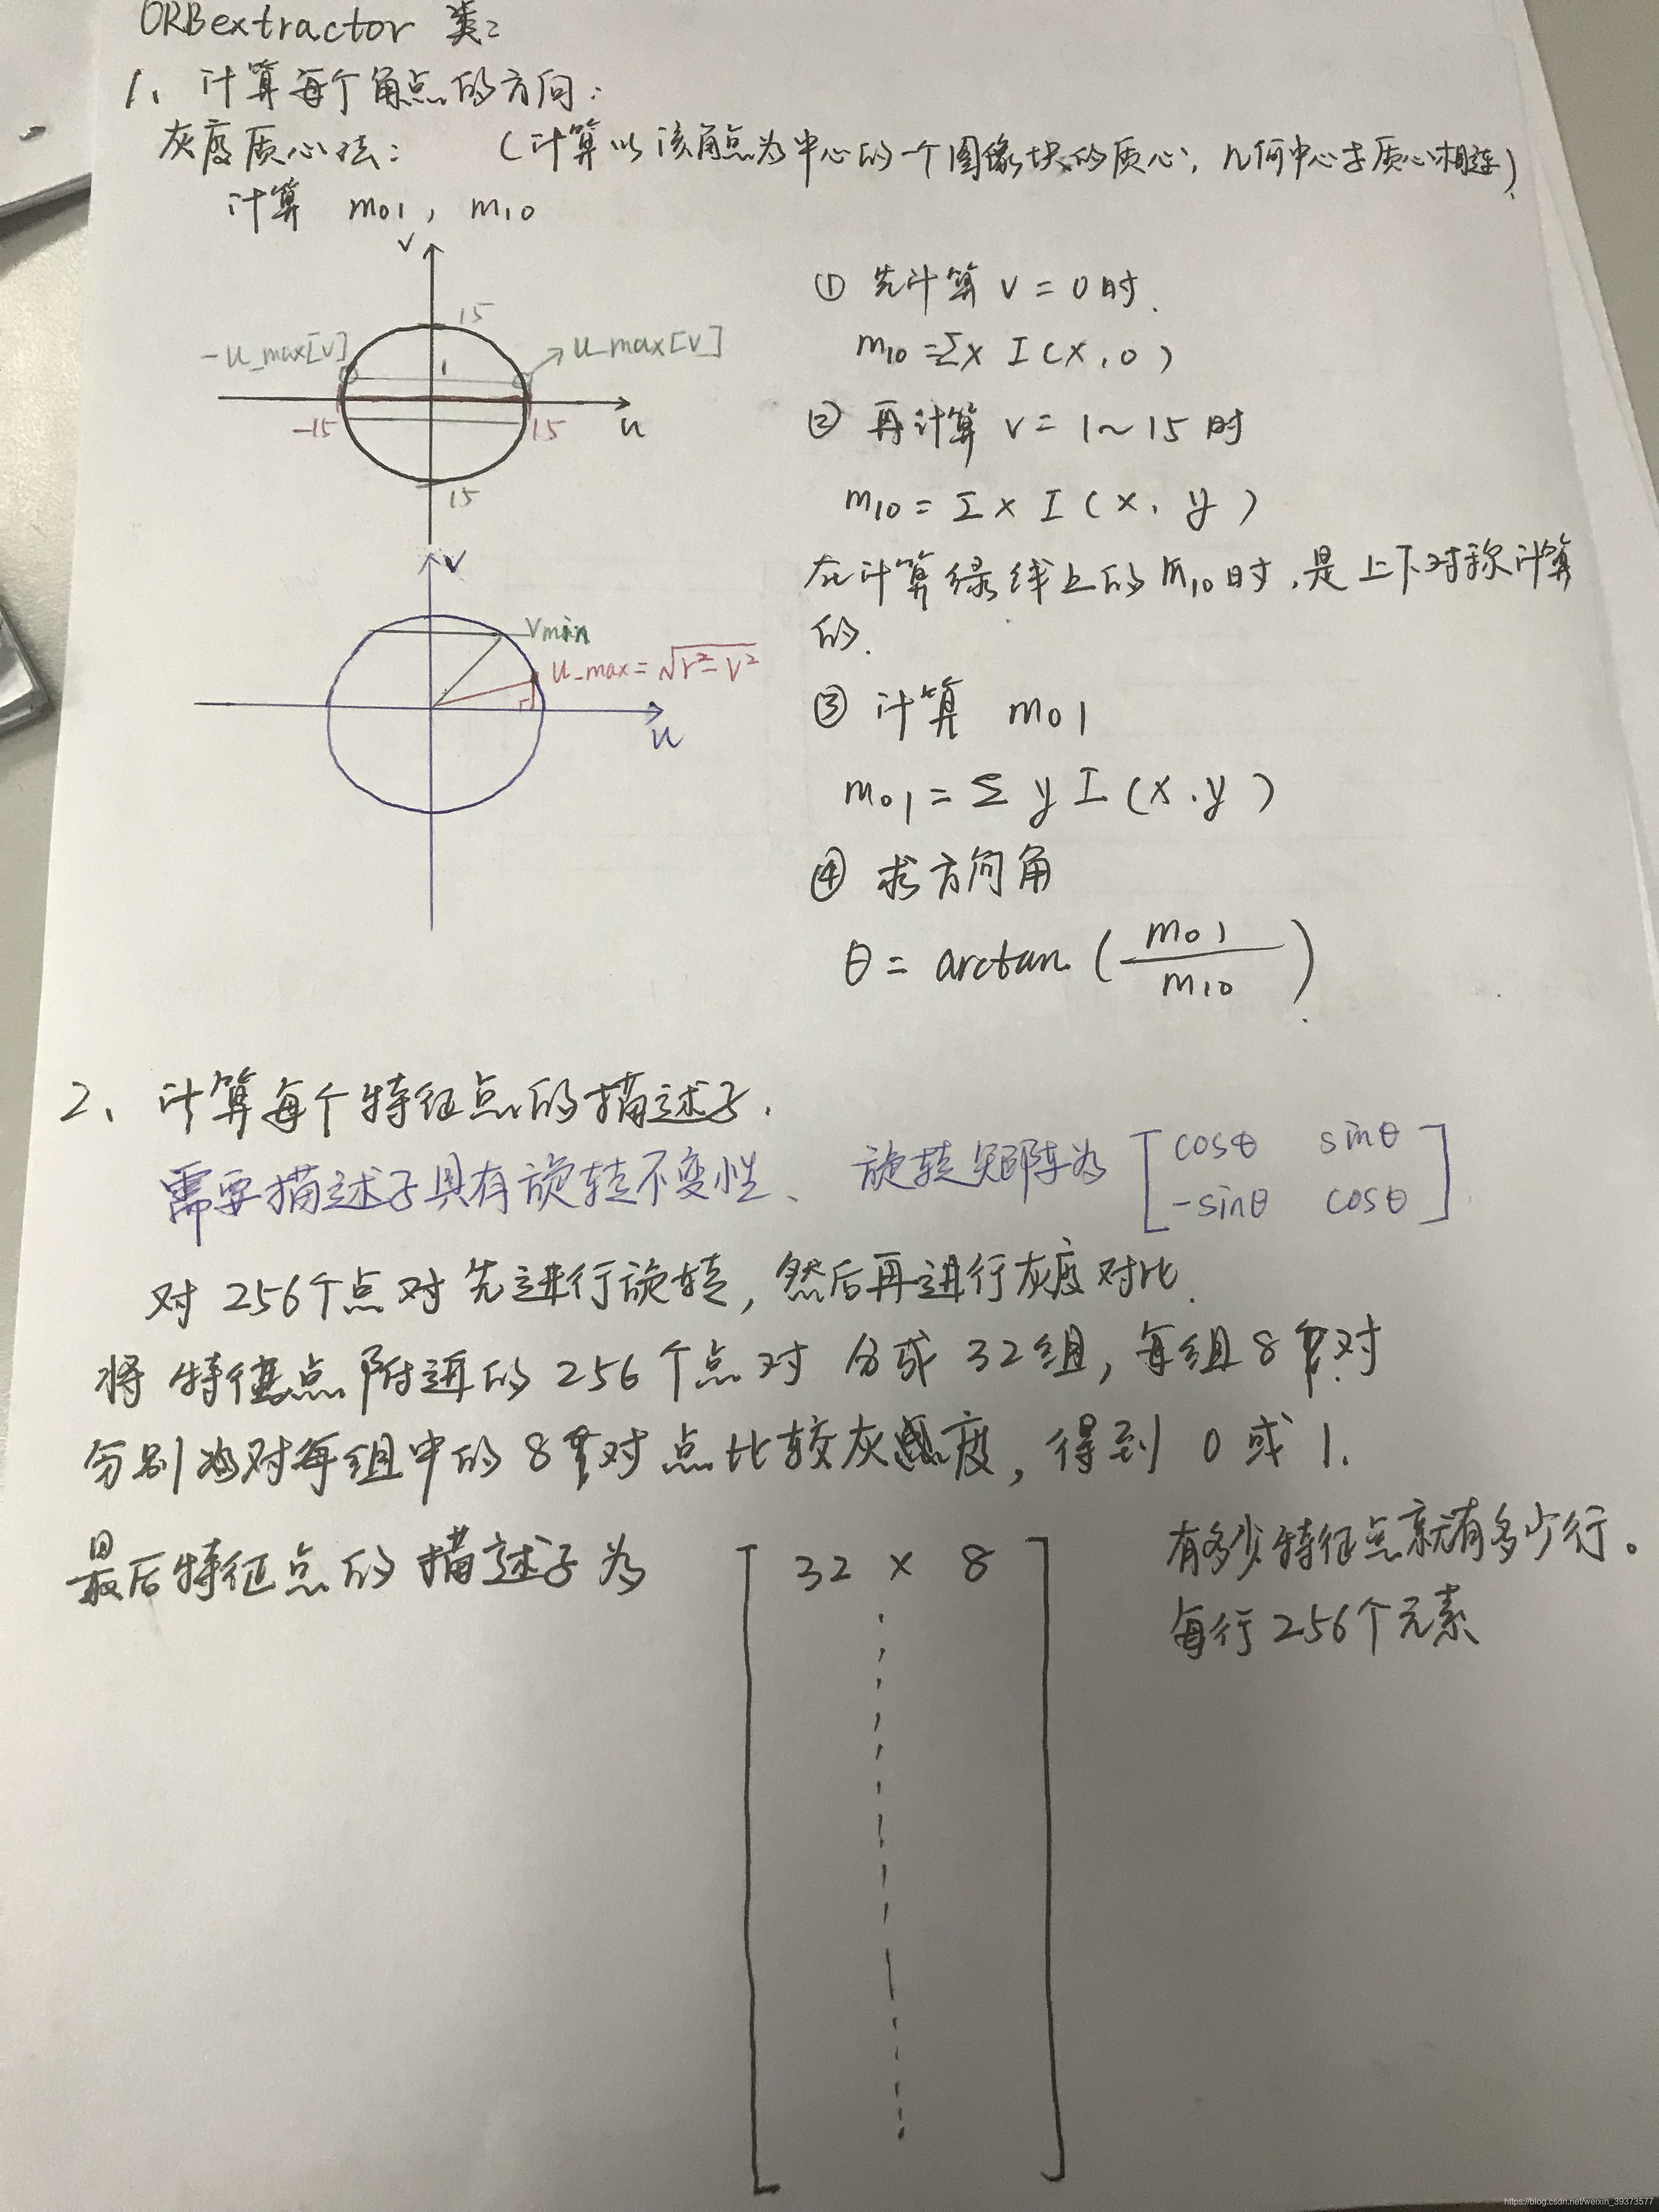 ORBextractor 类:
1、计算每个角点的方向:
灰度质心法: (计算以该角点为中心的一个图像块的质心, 几何中心与质心相连)
计算 m01, m10
v
15
-u_max[v]
u_max[v]
1
-15
15
u
15
① 先计算 v = 0 时.
m10 = Σx I(x, 0)
② 再计算 v = 1~15 时
m10 = Σ x I(x, y)
在计算绿线上的 m10 时, 是上下对称计算
的.
v
vmin
u_max = √r²-v²
u
③ 计算 m01
m01 = Σ y I(x, y)
④ 求方向角
θ = arctan (m01/m10)
2、计算每个特征点的描述子.
需要描述子具有旋转不变性、 旋转矩阵为 [cosθ sinθ
-sinθ cosθ]
对 256个点对先进行旋转, 然后再进行灰度对比.
将特征点附近的 256个点对 分成 32组, 每组 8对
分别对每组中的 8对点比较灰度, 得到 0 或 1.
最后特征点的描述子为 [32 × 8]
有多少特征点就有多少行。
每行 256个元素
https://blog.csdn.net/weixin_39373577